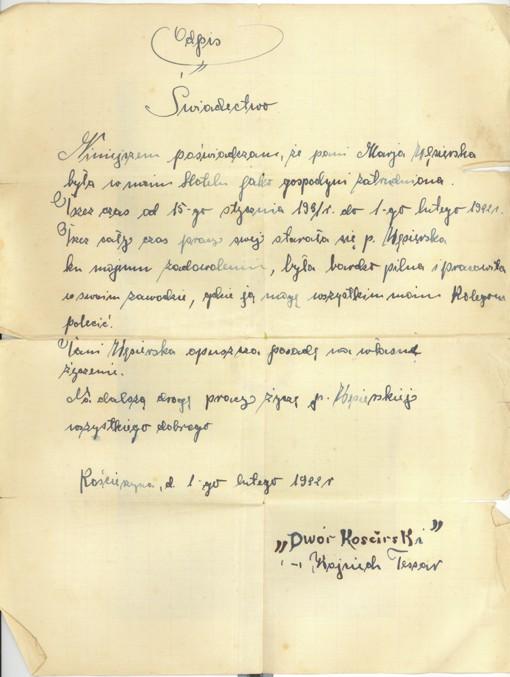 Odpis
Świadectwo
Niniejszem poświadczam, że pani Marja Węsierska
była w moim Hotelu jako gospodyni zatrudniona.
Przez czas od 15-go stycznia 1921r. do 1-go lutego 1922r.
Przez cały czas pracy swej starała się p. Węsierska
ku mojemu zadowoleniu, była bardzo pilna i pracowita
w swoim zawodzie, gdzie ją mogę wszystkim moim Kolegom
polecić.
Pani Węsierska opuszcza posadę na własne
życzenie.
Na dalszą drogę pracy życzę p. Węsierskiej
wszystkiego dobrego
Kościerzyna, d. 1-go lutego 1922r
„Dwór Kośčirski”
-,- Wojciech Tessar